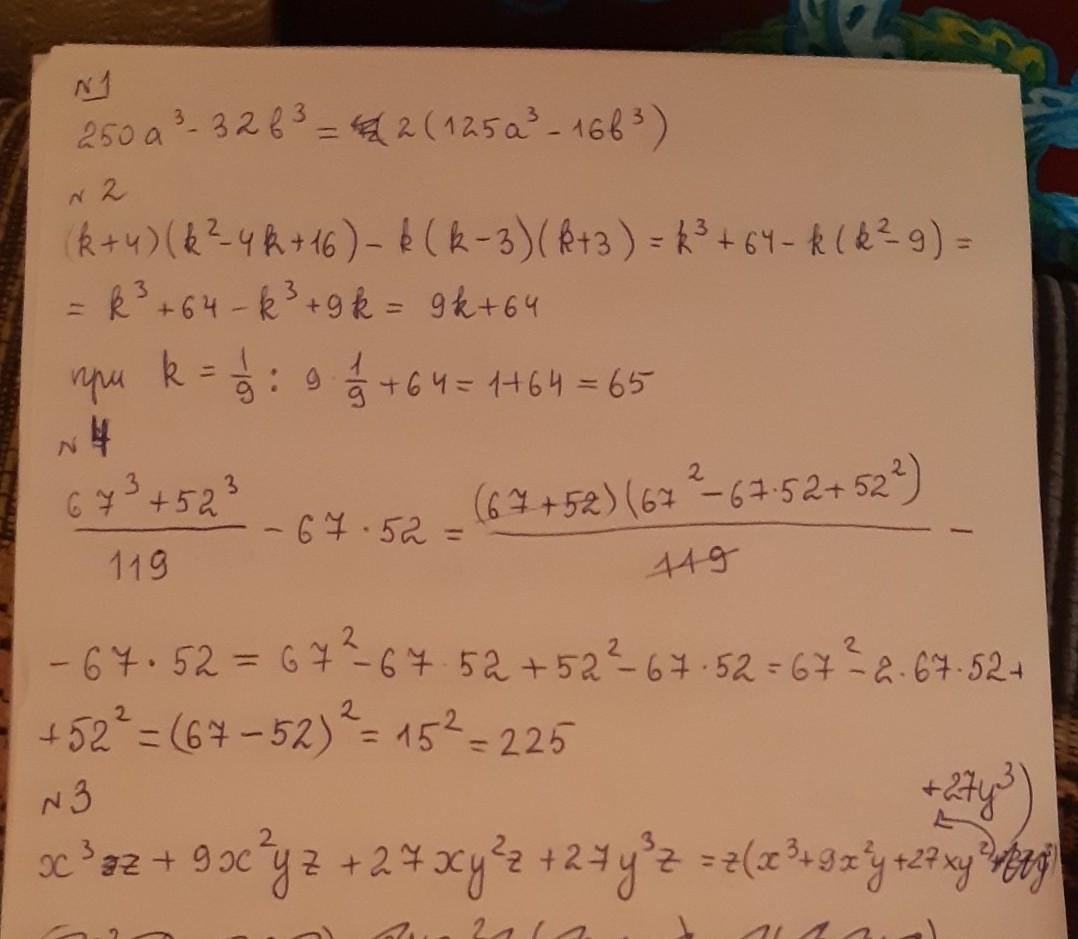 №1
250a³ - 32b³ = 2(125a³ - 16b³)
№2
(k+4)(k²-4k+16) - k(k-3)(k+3) = k³+64-k(k²-9) =
= k³+64-k³+9k = 9k+64
при k = 1/9 : 9·1/9+64 = 1+64 = 65
№4
(67³+52³)/119 - 67·52 = ((67+52)(67²-67·52+52²))/119 -
- 67·52 = 67²-67·52+52²-67·52 = 67²-2·67·52+
+52² = (67-52)² = 15² = 225
№3
+27y³)
x³z + 9x²yz + 27xy²z + 27y³z = z(x³+9x²y+27xy²